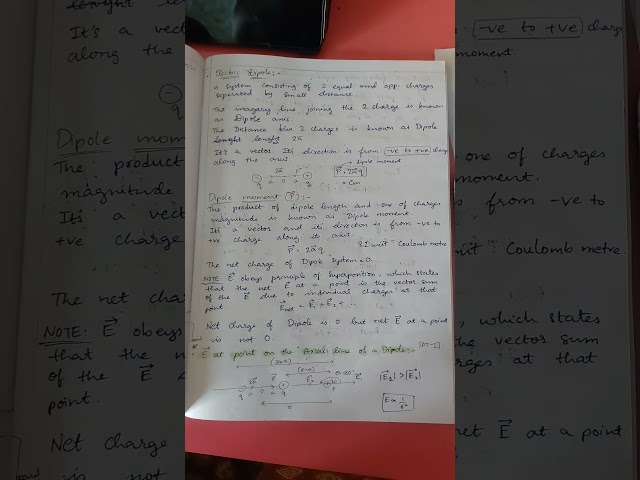 Electric Dipole :-
A system consisting of 2 equal and opp. charges
separated by small distance.
The imagary line joining the 2 charge is known
as Dipole axis.
The Distance b/w 2 charges is known as Dipole
lenght 2a
It's a vector. Its direction is from -ve to +ve charge
along the axis
dipole moment
P = 2a q
= Cm
2a P
- +
q a o a q
Dipole moment (P) :-
The product of dipole length and one of charges
magnitude is known as Dipole moment.
It's a vector and its direction is from -ve to
+ve charge along its axis.
P = 2a q S.I unit : Coulomb metre
The net charge of Dipole system = 0.
NOTE: E obeys principle of Superposition, which states
that the net E at a point is the vector sum
of the E due to individual charges at that
point Enet = E1 + E2 + ...
Net charge of Dipole is 0 but net E at a point
is not 0.
E at point on the Axial line of a Dipole :-
(r-a)
|E1| > |E2|
2a P
- +
q a o a q
r